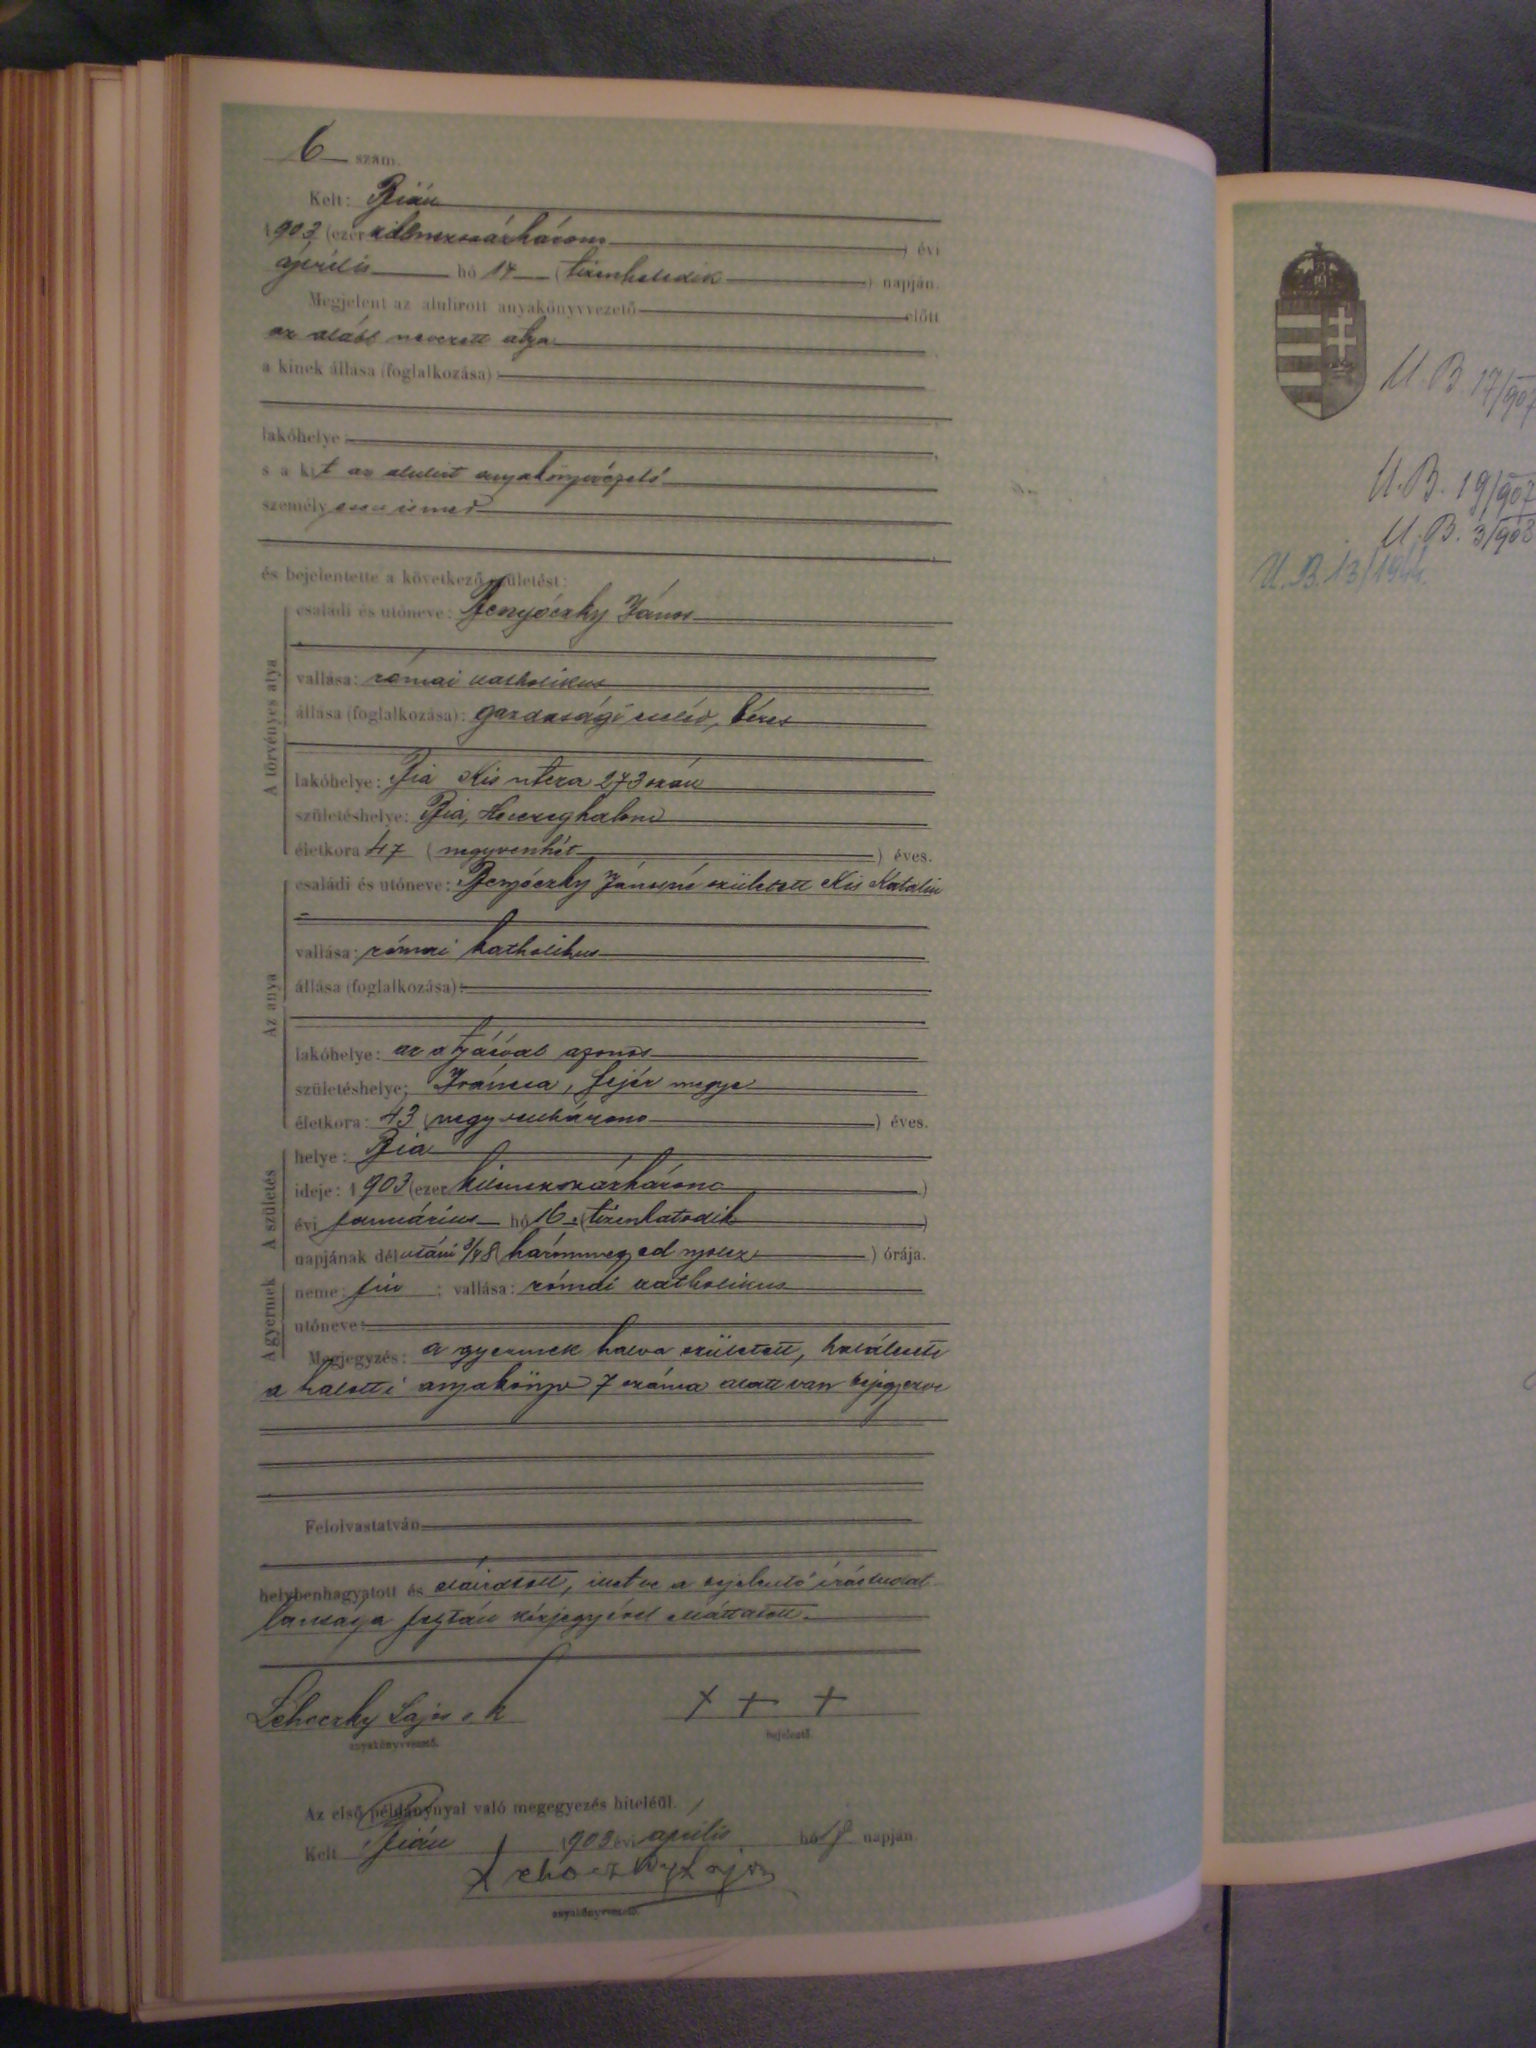 6 szám.
Kelt: Bián
1903 (ezer kilencszázhárom) évi
április hó 17 (tizenhetedik) napján.
Megjelent az alulirott anyakönyvvezető előtt
az alább nevezett atya
a kinek állása (foglalkozása):
lakóhelye
s a kit az alulirt anyakönyvvezető
személyesen ismer
és bejelentette a következő születést:
A törvényes atya
családi és utóneve: Benyóczky János
vallása: római katholikus
állása (foglalkozása): gazdasági cseléd, béres
lakóhelye: Bia Kis utcza 273 szám
születéshelye: Bia, Herczeghalom
életkora 47 (negyvenhét) éves.
Az anya
családi és utóneve: Benyóczky Jánosné született Kis Katalin
vallása: római katholikus
állása (foglalkozása):
lakóhelye: az atyáéval azonos
születéshelye: Iváncsa, Fejér megye
életkora: 43 (negyvenhárom) éves.
A születés
helye: Bia
ideje: 1903 (ezer kilencszázhárom)
évi január hó 16 (tizenhatodik)
napjának délutáni 3/48 (háromnegyed nyolcz) órája.
A gyermek
neme: fiú; vallása: római katholikus
utóneve:
Megjegyzés: a gyermek halva született, halálesete
a halotti anyakönyv 7 száma alatt van bejegyezve
Felolvastatván
helybenhagyatott és aláíratott, illetve a bejelentő írástudat
lansága folytán kézjegyével elláttatott.
Lehoczky Lajos s. k
+ + +
anyakönyvvezető.
bejelentő.
Az első példánynyal való megegyezés hiteléül.
Kelt Bián 1903 évi április hó 17 napján.
Lehoczky Lajos
anyakönyvvezető.
U. B. 17/907
U. B. 19/907
U. B. 3/908
U. B. 13/1944.